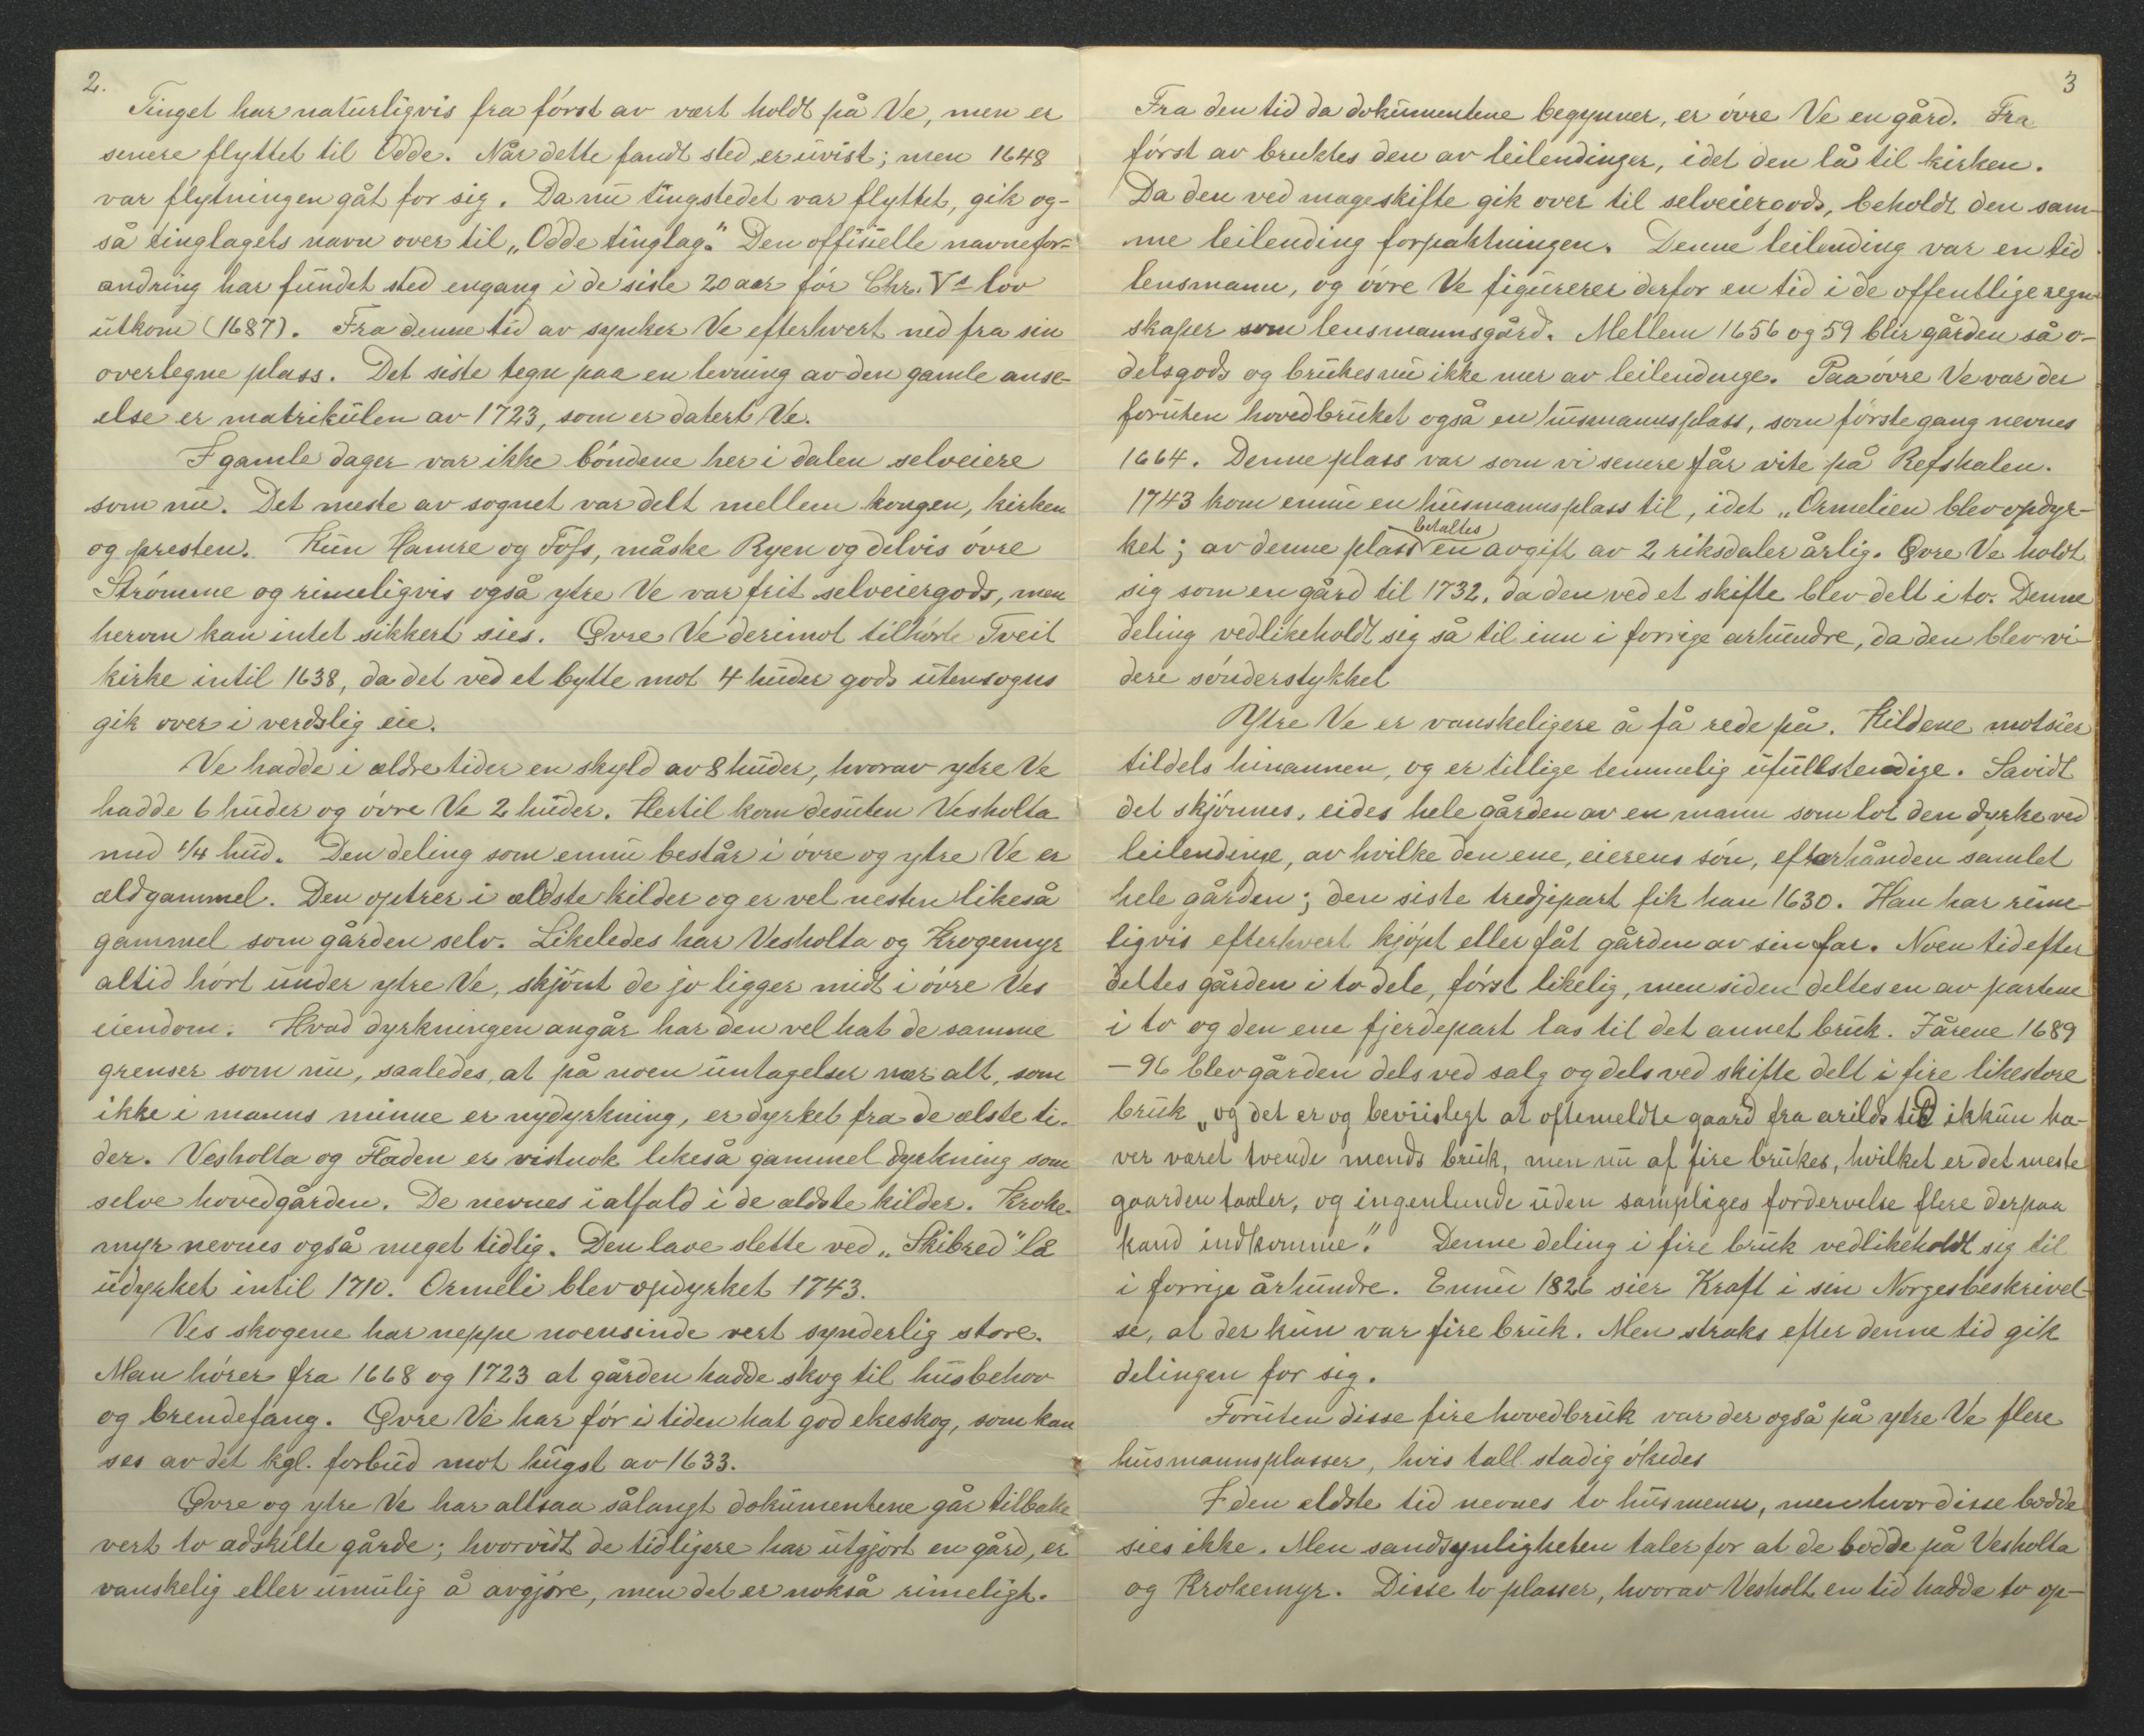 2.
Tinget har naturligvis fra först av vært holdt på Ve, men er
senere flyttet til Odde. Når dette fandt sted er uvist; men 1648
var flytningen gåt for sig. Da nu tingstedet var flyttet, gik og-
så tinglagets navn over til „Odde tinglag." Den offisielle navnefor-
andring har fundet sted engang i de siste 20 aar för Chr. Vs lov
utkom (1687). Fra denne tid av synker Ve efterhvert ned fra sin
overlegne plass. Det siste tegn paa en levning av den gamle anse-
else er matrikulen av 1723, som er datert Ve.
I gamle dager var ikke böndene her i dalen selveiere
som nu. Det meste av sognet var delt mellem kongen, kirken
og presten. Kun Hamre og Föfs, måske Ryen og delvis övre
Strömme og rimeligvis også ytre Ve var frit selveiergods, men
herom kan intet sikkert sies. Övre Ve derimot tilhörte Tveit
kirke intil 1638, da det ved et bytte mot 4 huder gods utensogns
gik over i verdslig eie.
Ve hadde i ældre tider en skyld av 8 huder, hvorav ytre Ve
hadde 6 huder og övre Ve 2 huder. Hertil kom desuten Vesholta
med 1/4 hud. Den deling som ennu består i övre og ytre Ve er
ældgammel. Den optrer i ældste kilder og er vel nesten likeså
gammel som gården selv. Likeledes har Vesholta og Krogemyr
altid hört under ytre Ve, skjönt de jo ligger midt i övre Ves
eiendom. Hvad dyrkningen angår har den vel hat de samme
grenser som nu, saaledes, at på noen untagelser nær alt, som
ikke i manns minne er nydyrkning, er dyrket fra de ælste ti-
der. Vesholta og Fladen er vistnok likeså gammel dyrkning som
selve hovedgården. De nevnes i alfald i de ældste kilder. Kroke-
myr nevnes også meget tidlig. Den lave slette ved „Skibred" lå
udyrket intil 1710. Ormeli blev opdyrket 1743.
Ves skogene har neppe noensinde vert synderlig store.
Man hörer fra 1668 og 1723 at gården hadde skog til husbehov
og brendefang. Övre Ve har för i tiden hat god ekeskog, som kan
ses av det kgl. forbud mot hugst av 1633.
Övre og ytre Ve har altsaa sålangt dokumentene går tilbake
vert to adskilte gårde; hvorvidt de tidligere har utgjört en gård, er
vanskelig eller umulig å avgjöre, men det er nokså rimeligt.
3
Fra den tid da dokumentene begynner, er övre Ve en gård. Fra
först av bruktes den av leilendinger, idet den lå til kirken.
Da den ved mageskifte gik over til selveiergods, beholdt den sam-
me leilending forpaktningen. Denne leilending var en tid
lensmann, og övre Ve figurerer derfor en tid i de offentlige regn-
skaper som lensmannsgård. Mellem 1656 og 59 blir gården så o-
delsgods og brukes nu ikke mer av leilendinge. Paa övre Ve var der
foruten hovedbruket også en husmannsplass, som förste gang nevnes
1664. Denne plass var som vi senere får vite på Refshalen.
1743 kom ennu en husmannsplass til, idet „Ormelien blev opdyr-
betaltes
ket; av denne plass en avgift av 2 riksdaler årlig. Övre Ve holdt
sig som en gård til 1732, da den ved et skifte blev delt i to. Denne
deling vedlikeholdt sig så til inn i forrige århundre, da den blev vi-
dere sönderstykket
Ytre Ve er vanskeligere å få rede på. Kildene motsier
tildels hinannen, og er tillige temmelig ufullstendige. Savidt
det skjönnes, eides hele gården av en mann som lot den dyrke ved
leilendinge, av hvilke den ene, eierens sön, efterhånden samlet
hele gården; den siste tredjepart fik han 1630. Han har rime-
ligvis efterhvert kjöpt eller fåt gården av sin far. Noen tid efter
deltes gården i to dele, först likelig, men siden deltes en av partene
i to og den ene fjerdepart las til det annet bruk. I årene 1689
-96 blev gården dels ved salg og dels ved skifte delt i fire likestore
bruk „og det er og beviisligt at oftemeldte gaard fra arilds tid ikkun ha-
ver været tvende mends bruk, men nu af fire brukes, hvilket er det meste
gaarden taaler, og ingenlunde uden samptliges fordervelse flere derpaa
kand indkomme." Denne deling i fire bruk vedlikeholdt sig til
i forrige århundre. Ennu 1826 sier Kraft i sin Norgesbeskrivel-
se, at der kun var fire bruk. Men straks efter denne tid gik
delingen for sig.
Foruten disse fire hovedbruk var der også på ytre Ve flere
husmannsplasser, hvis tall stadig ökedes
I den ældste tid nevnes to husmenn, men hvor disse bodde
sies ikke. Men sandsynligheten taler for at de bodde på Vesholta
og Krokemyr. Disse to plasser, hvorav Vesholt en tid hadde to op-